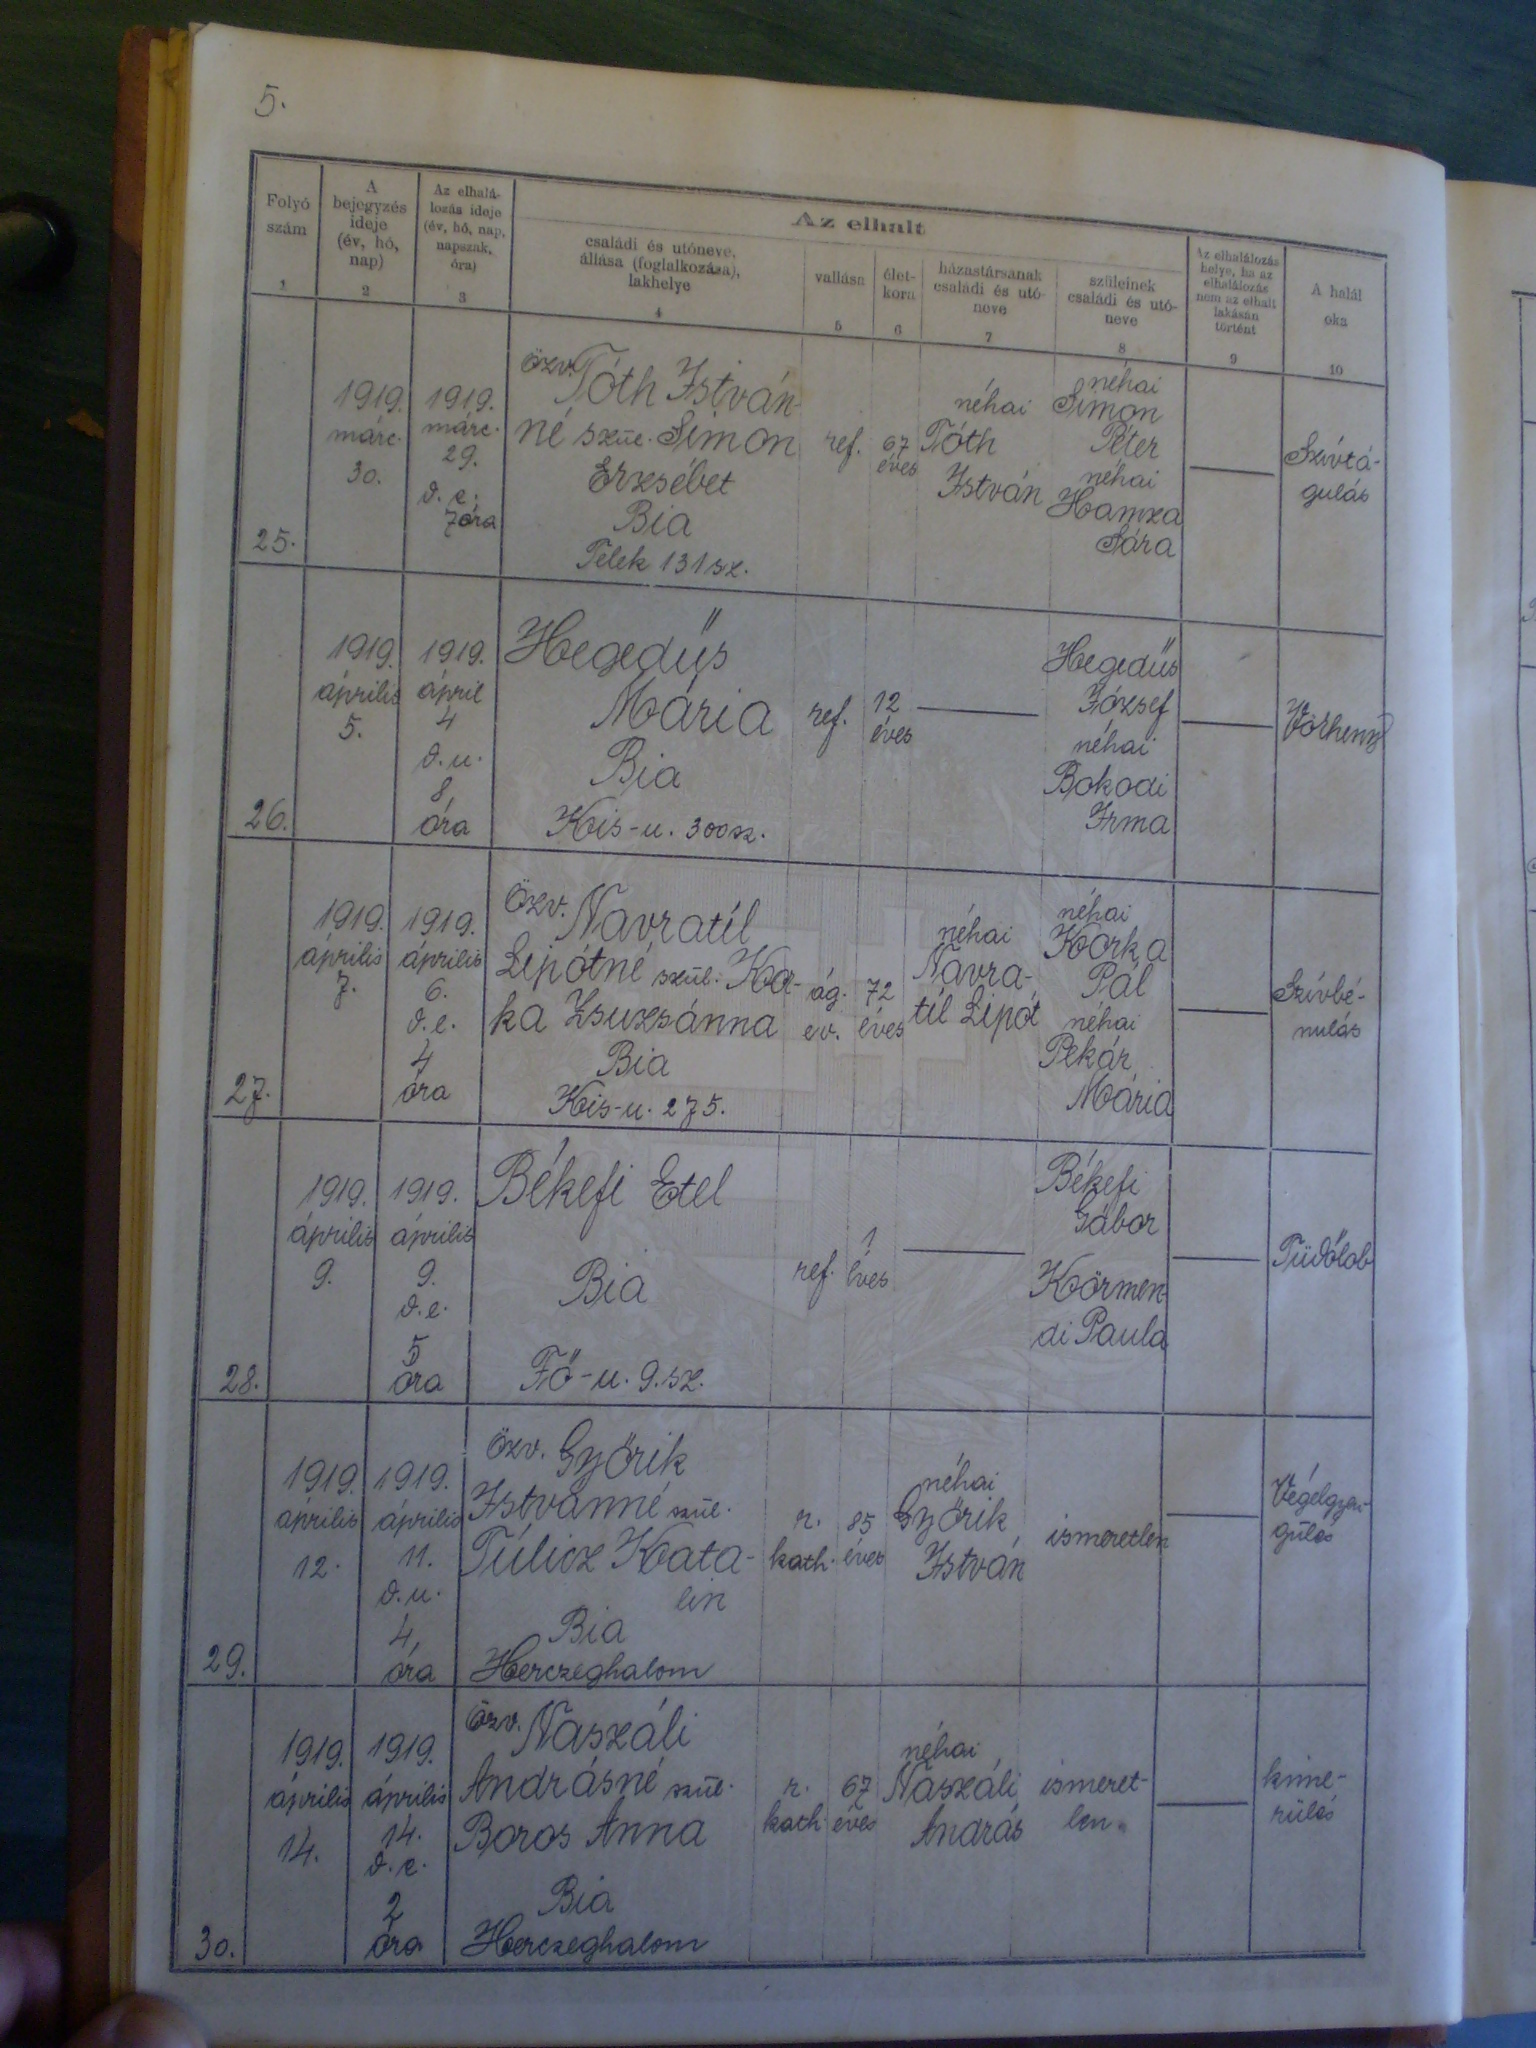 5.
Folyó
szám
1
A
bejegyzés
ideje
(év, hó,
nap)
2
Az elhalá-
lozás ideje
(év, hó, nap,
napszak,
óra)
3
Az elhalt
családi és utóneve,
állása (foglalkozása),
lakhelye
4
vallása
5
élet-
kora
6
házastársának
családi és utó-
neve
7
szüleinek
családi és utó-
neve
8
Az elhalálozás
helye, ha az
elhalálozás
nem az elhalt
lakásán
történt
9
A halál
oka
10
25.
1919.
márc.
30.
1919.
márc.
29.
d. e.
7 óra
özv. Tóth István-
né szül. Simon
Erzsébet
Bia
Telek 131 sz.
ref.
67
éves
néhai
Tóth
István
néhai
Simon
Péter
néhai
Hamza
Sára
Szívtá-
gulás
26.
1919.
április
5.
1919.
április
4
d. u.
8
óra
Hegedűs
Mária
Bia
Kis-u. 300 sz.
ref.
12
éves
Hegedűs
József
néhai
Bokodi
Irma
Vörheny
27.
1919.
április
7.
1919.
április
6.
d. e.
4
óra
Özv. Navratil
Lipótné szül. Kor-
ka Zsuzsánna
Bia
Kis-u. 275.
ág.
ev.
72
éves
néhai
Navra-
til Lipót
néhai
Korka
Pál
néhai
Pekár
Mária
Szívbé-
nulás
28.
1919.
április
9.
1919.
április
9.
d. e.
5
óra
Békefi Etel
Bia
Fő-u. 9. sz.
ref.
1
éves
Békefi
Gábor
Körmen-
di Paula
Tüdőlob
29.
1919.
április
12.
1919.
április
11.
d. u.
4
óra
özv. Győrik
Istvánné szül.
Túlicz Kata-
lin
Bia
Herczeghalom
r.
kath.
85
éves
néhai
Győrik
István
ismeretlen
Végelgyen-
gülés
30.
1919.
április
14.
1919.
április
14.
d. e.
2
óra
özv. Naszáli
Andrásné szül.
Boros Anna
Bia
Herczeghalom
r.
kath
67
éves
néhai
Naszáli
András
ismeret-
len.
kime-
rülés